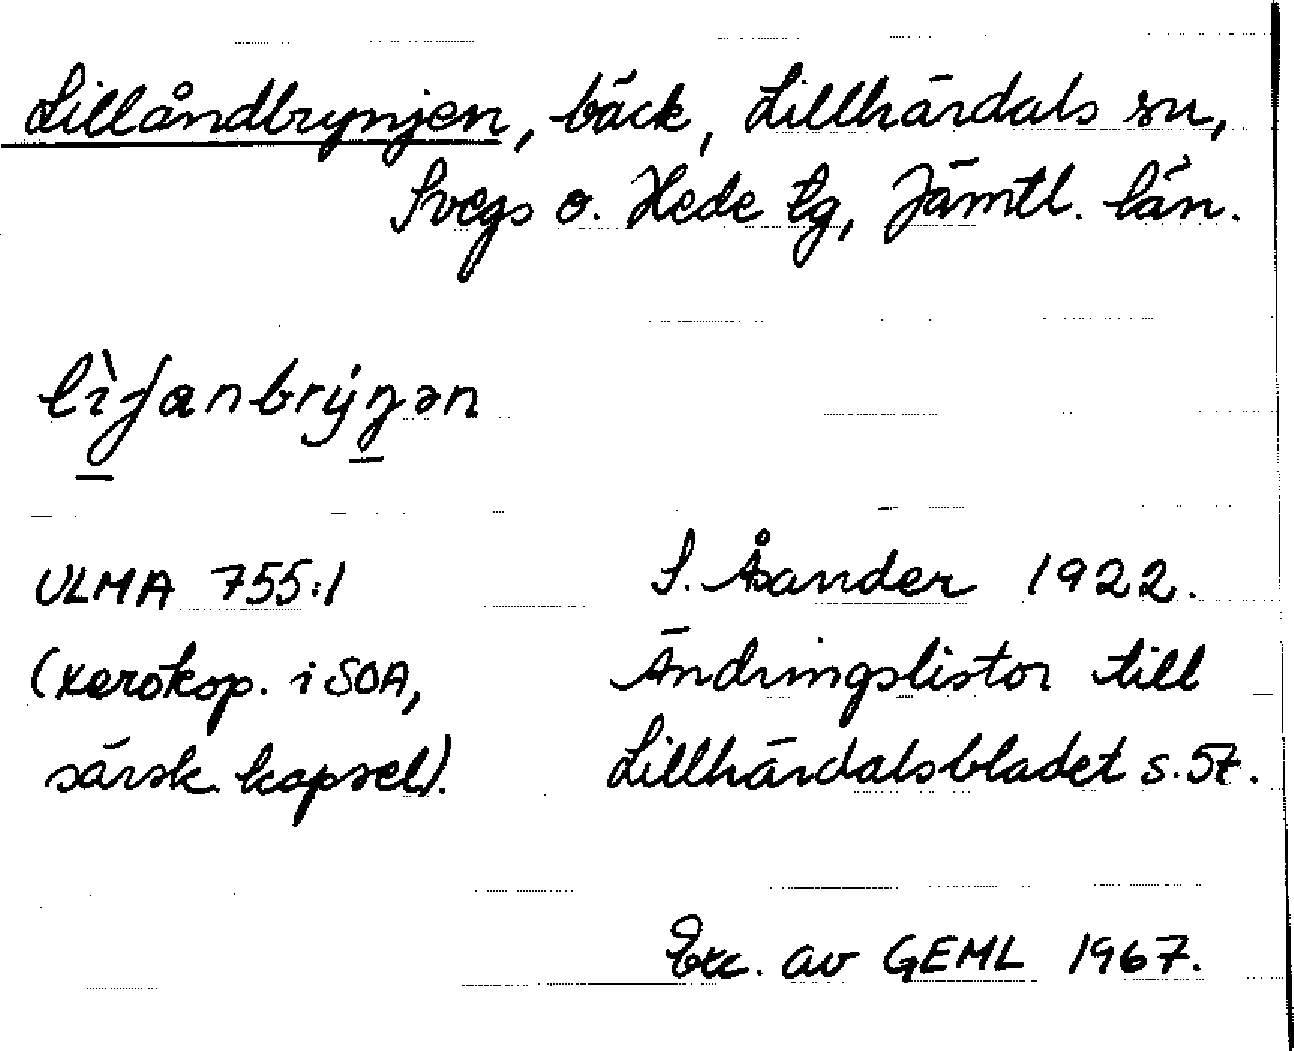 Lillåndbrynjen, bäck, Lillhärdals sn,
Svegs o. Hede tg, Jämtl. län.
ULMA 755:1
S. Åsander 1922.
(xerokop. i SOA,
Ändringslistor till
särsk. kapsel).
Lillhärdalsbladet s. 57.
Exc. av GEML 1967.